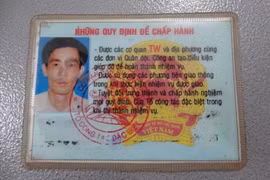 NHỮNG QUY ĐỊNH ĐỂ CHẤP HÀNH
- Được các cơ quan TW và địa phương cùng
các đơn vị Quân đội, Công an tạo điều kiện
giúp đỡ để hoàn thành nhiệm vụ.
- Được sử dụng các phương tiện giao thông
trong khi thực hiện nhiệm vụ được giao.
- Tuyệt đối trung thành và chấp hành nghiêm
mọi quy định của Tổ công tác đặc biệt trong
khi thi hành nhiệm vụ.
VIỆT NAM